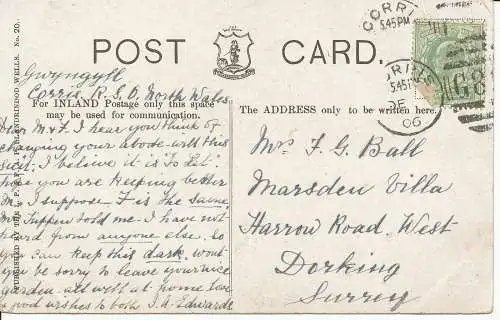 POST CARD.
Gwyngyll
Corris, R.S.O. North Wales
For INLAND Postage only this space
may be used for communication.
The ADDRESS only to be written here.
Dear M & F. I hear you think of
changing your abode will this
suit. I believe it is To Let.
hope you are keeping better
Mr. I suppose F is the same
Mr Tuppen told me I have not
heard from anyone else. So
you can keep this dark. wont
you be sorry to leave your nice
garden all well at home Love
& good wishes to both J.A. Edwards
Mrs F. G. Ball
Marsden Villa
Harrow Road, West
Dorking
Surrey
CORRIS
5.45PM
CORRIS
5.45PM
DE
06
G8
PUBLISHED BY THE
LLANDRINDOD WELLS. No. 20.